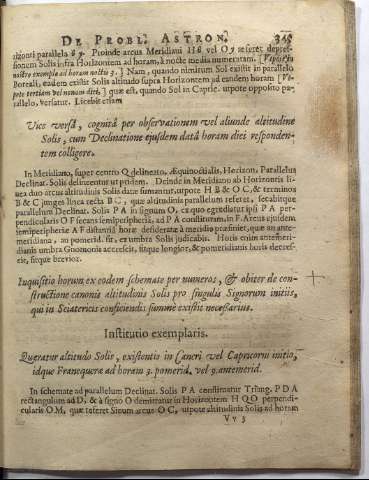 DE PROBL. ASTRON. 345
rizonti parallela 8 9. Proinde arcus Meridiani H 8 vel O 9 referet depres-
sionem Solis infra Horizontem ad horam, à nocte media numeratam. [Ut pote in
nostro exemplo ad horam noctis 3.] Nam, quando nimirum Sol existit in parallelo
Boreali, eadem existit Solis altitudo supra Horizontem ad eandem horam [Ut-
pote tertiam vel nonam diei,] quæ est, quando Sol in Capric. utpote opposito pa-
rallelo, versatur. Licebit etiam
Vice versâ, cognitâ per observationem vel aliunde altitudine
Solis, cum Declinatione ejusdem datâ horam diei responden-
tem colligere.
In Meridiano, super centro Q delineato, Æquinoctialis, Horizon, Parallelus
Declinat. Solis delineentur ut pridem. Deinde in Meridiano ab Horizontis li-
nea duo arcus altitudinis Solis datæ sumantur, utpote H B & O C, & terminos
B & C junges linea recta B C, quæ altitudinis parallelum referet, secabitque
parallelum Declinat. Solis P A in signum O, ex quo egrediatur ipsi P A per-
pendicularis O F secans semiperipheriã, ad P A constitutam, in F. Arcus ejusdem
semiperipheriæ A F distantiã horæ desideratæ à meridio præfiniet, quæ an ante-
meridiana, an pomerid. sit, ex umbra Solis judicabis. Horis enim antemeri-
dianis umbra Gnomonis accrescit, fitque longior, & pomeridianis horis decres-
cit, fitque brevior.
Inquisitio horum ex eodem schemate per numeros, & obiter de con-
structione canonis altitudinis Solis pro singulis Signorum initiis,
qui in Sciatericis conficiendis summè existit necessarius.
Institutio exemplaris.
Quæratur altitudo Solis, existentis in Cancri vel Capricorni initio,
idque Franequeræ ad horam 3. pomerid. vel 9. antemerid.
In schemate ad parallelum Declinat. Solis P A constituatur Triang. P D A
rectangulum ad D, & à signo O demittatur in Horizontem H Q O perpendi-
cularis O M, quæ referet Sinum arcus O C, utpote altitudinis Solis ad horam
V v 3